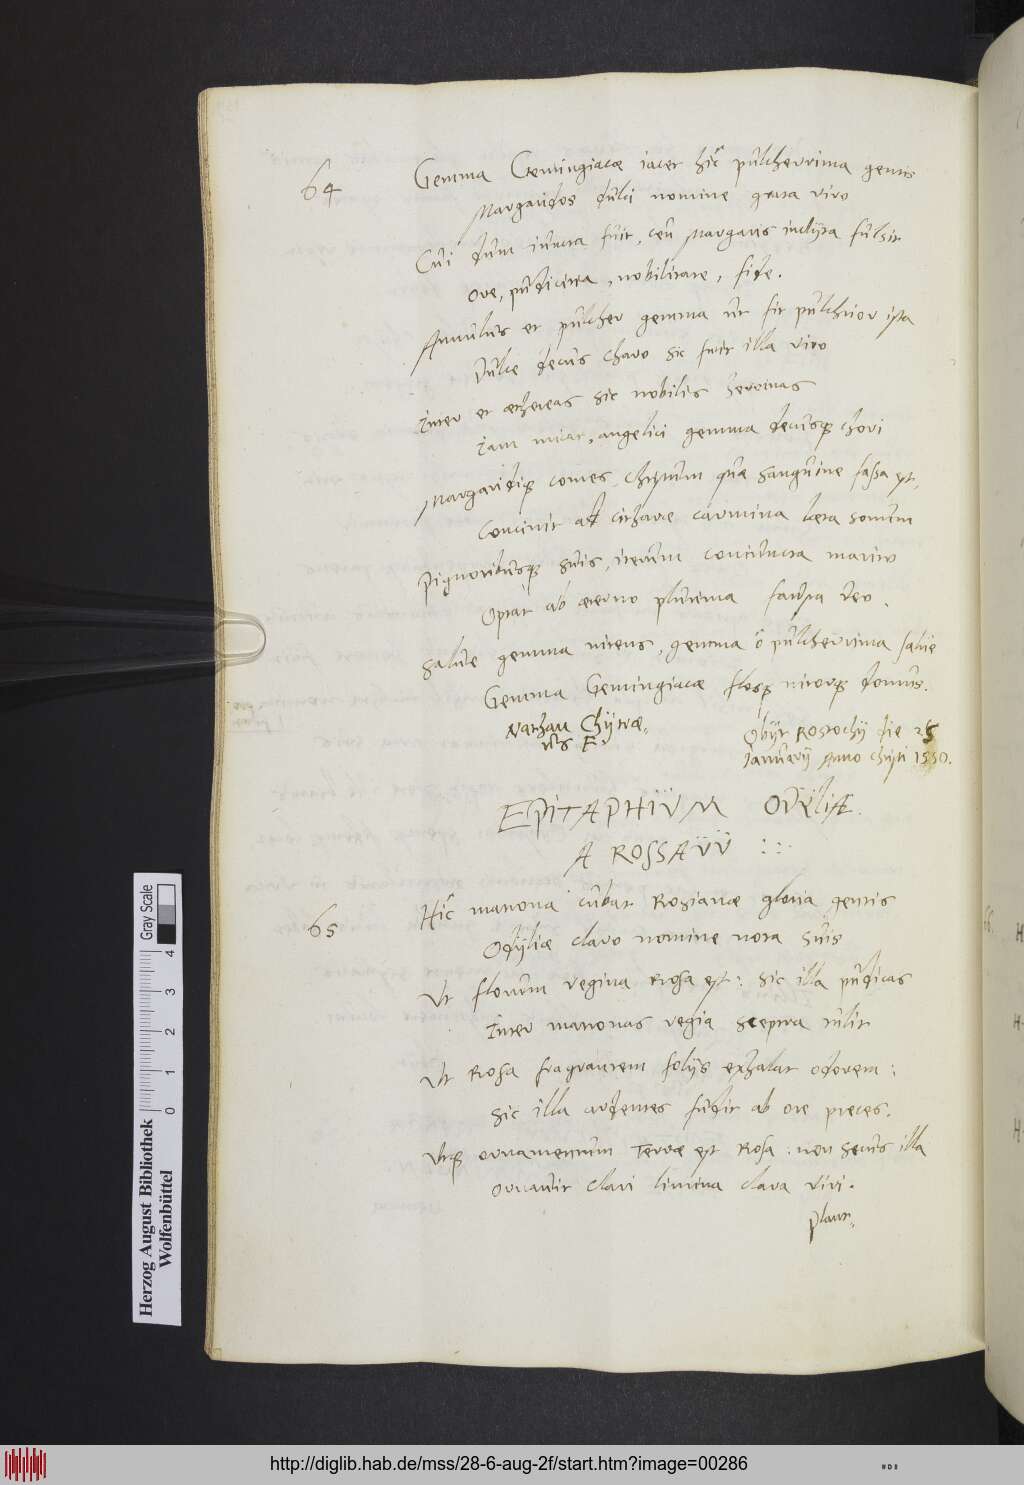 64
Gemma Gemingiacæ iacet hîc pulcherrima gentis
Margaridos dulci nomine grata viro
Cui dum iuncta fuit, ceu Margaris inclyta fulsit
Ore, pudicitia, nobilitate, fide.
Annulus et pulcher gemma ut fit pulchrior ista
Dulce decus charo sic fuit illa viro
Inter et æthereas sic nobilis heroinas
Iam micat, angelici gemma decusq chori
Margaridiq comes, Christum quæ sanguine fassa est,
Concinit ad citharæ carmina læta sonum
Pignoribusq suis, iterum coniuncta marito
Optat ab æterno plurima fausta deo.
Salute gemma nitens, gemma ô pulcherrima salve
Gemma Gemingiacæ flosq nitorq domus.
Nathan Chÿtræ,
us F.
Obijt Rostochij die 25
Januarij Anno christi 1550.
EPITAPHIUM ODŸLIÆ
A ROSSAUU :::
65
Hîc matrona cubat Rosianæ gloria gentis
Odÿliæ claro nomine nota suis
Ut florum regina Rosa est: sic illa pudicas
Inter matronas regia sceptra tulit
Ut Rosa fragrantem folijs exhalat odorem:
Sic illa ardentes fudit ab ore preces.
Utq ornamentum terræ est Rosa: non secus illa
Ornavit clari limina clara viri.
Plaur,
Gray Scale
0 1 2 3 4
Herzog August Bibliothek
Wolfenbüttel
http://diglib.hab.de/mss/28-6-aug-2f/start.htm?image=00286